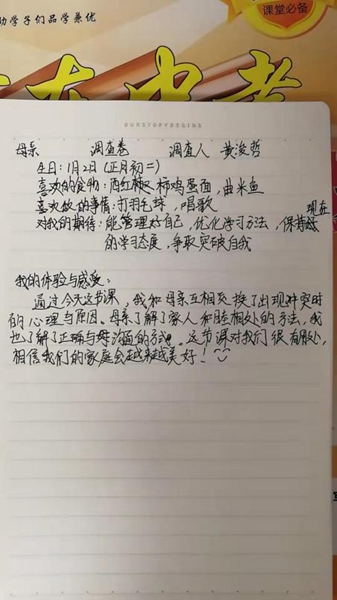 助学子们品学兼优
课堂必备
中考
母亲 调查卷 调查人 黄浚哲
生日:1月2日(正月初二)
喜欢的食物:西红柿鸡蛋面,曲米鱼
喜欢做的事情:打羽毛球,唱歌
对我的期待:能管理好自己,优化学习方法,保持现在
的学习态度,争取突破自我
我的体验与感受:
通过今天这节课,我和母亲互相交换了出现冲突时
的心理与原因。母亲了解了家人和睦相处的方法,我
也了解了正确与母沟通的方式。这节课对我们很有用处,
相信我们的家庭会越来越美好!